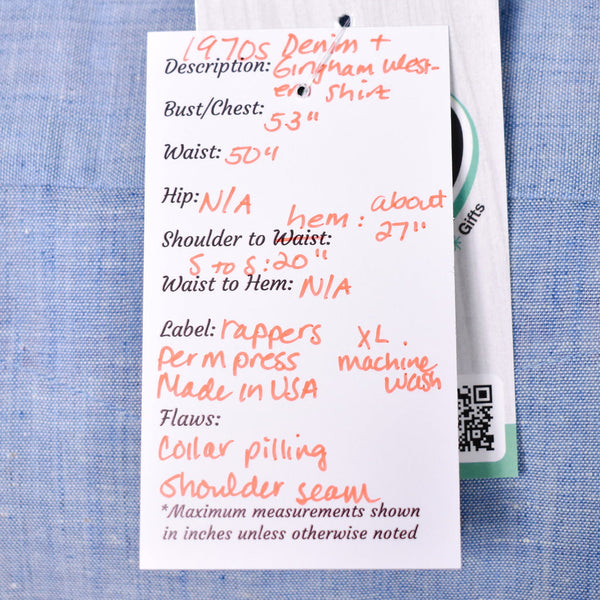 1970s Denim +
Description: Gingham West-
ern Shirt
Bust/Chest: 53"
Waist: 50"
Hip: N/A
hem: about
Shoulder to Waist: 27"
S to S: 20"
Waist to Hem: N/A
Label: rappers XL.
Perm press machine
Made in USA wash
Flaws:
Collar pilling
Shoulder seam
*Maximum measurements shown
in inches unless otherwise noted
Gifts